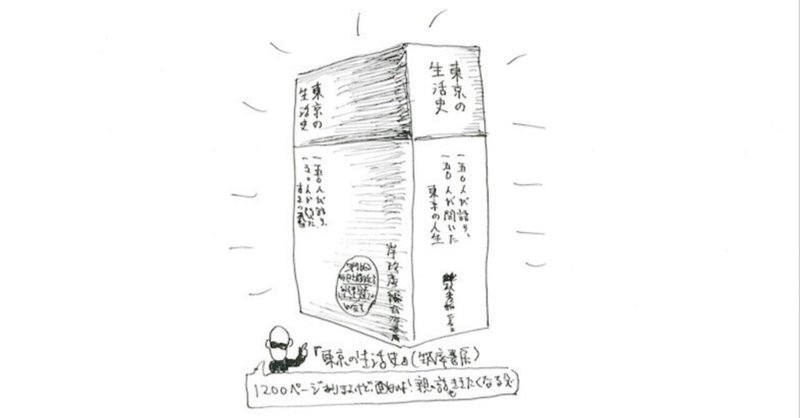 東京の
生活史
東京の
生活史
一五〇人が語り、
一五〇人が聞いた
一五〇人が語り、
一五〇人が聞いた
東京の人生
岸政彦 編
『東京の生活史』(筑摩書房)
1200ページ 面白いよ!親の話もききたくなる